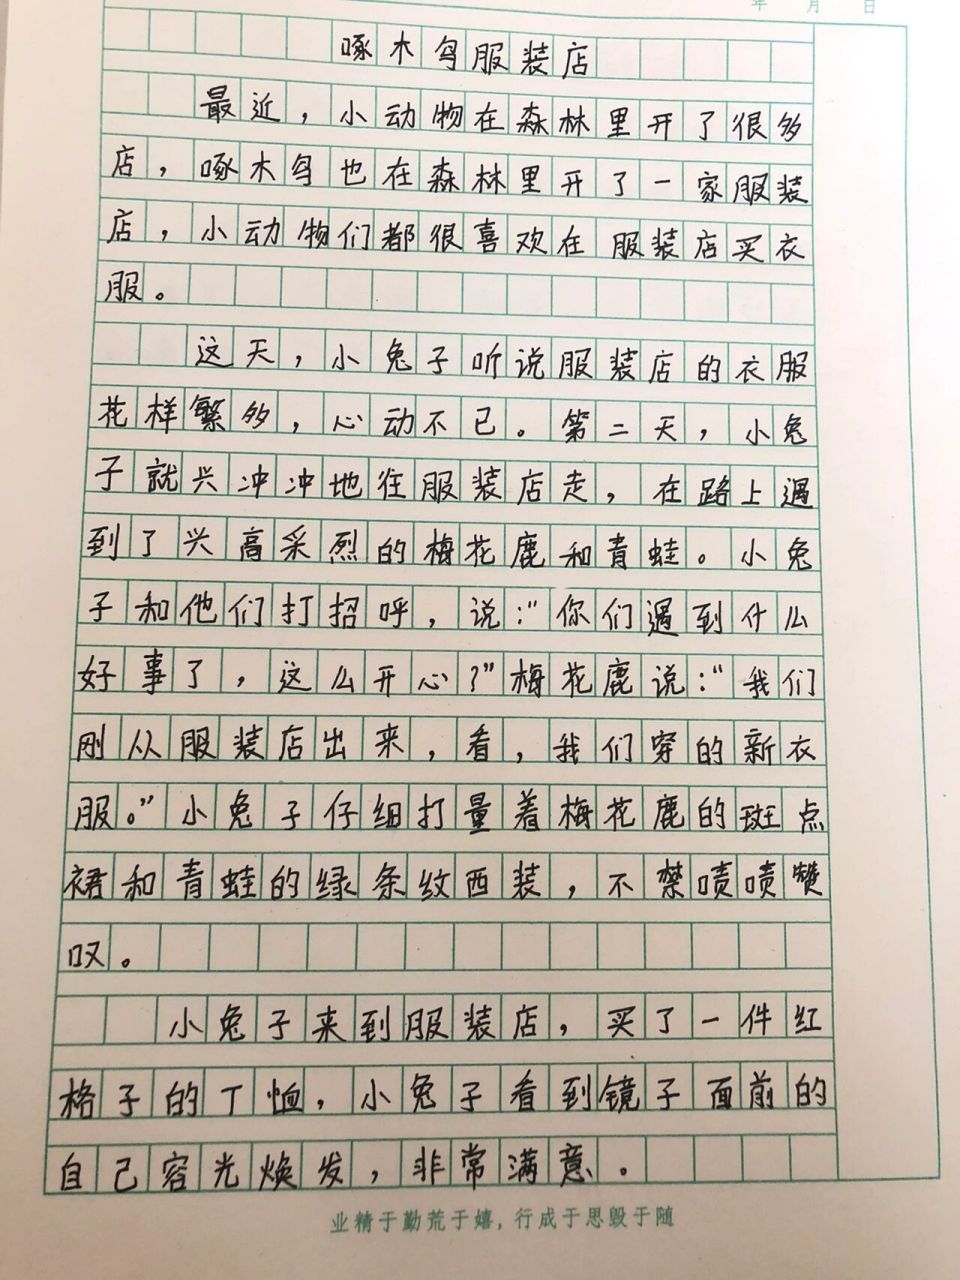 年 月 日
啄木鸟服装店
最近，小动物在森林里开了很多
店，啄木鸟也在森林里开了一家服装
店，小动物们都很喜欢在服装店买衣
服。
这天，小兔子听说服装店的衣服
花样繁多，心动不已。第二天，小兔
子就兴冲冲地往服装店走，在路上遇
到了兴高采烈的梅花鹿和青蛙。小兔
子和他们打招呼，说：“你们遇到什么
好事了，这么开心？”梅花鹿说：“我们
刚从服装店出来，看，我们穿的新衣
服。”小兔子仔细打量着梅花鹿的斑点
裙和青蛙的绿条纹西装，不禁啧啧赞
叹。
小兔子来到服装店，买了一件红
格子的丁恤，小兔子看到镜子面前的
自己容光焕发，非常满意。
业精于勤荒于嬉，行成于思毁于随